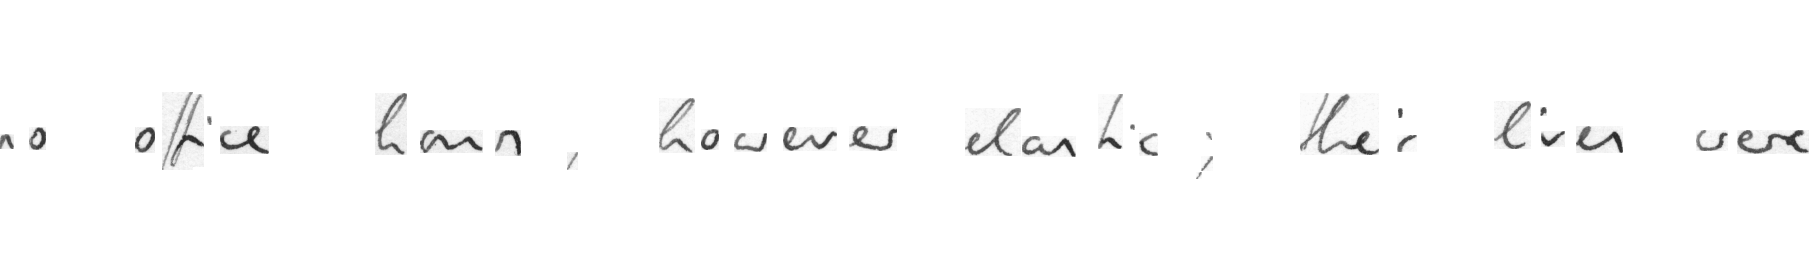 no office hours, however elastic; their lives were